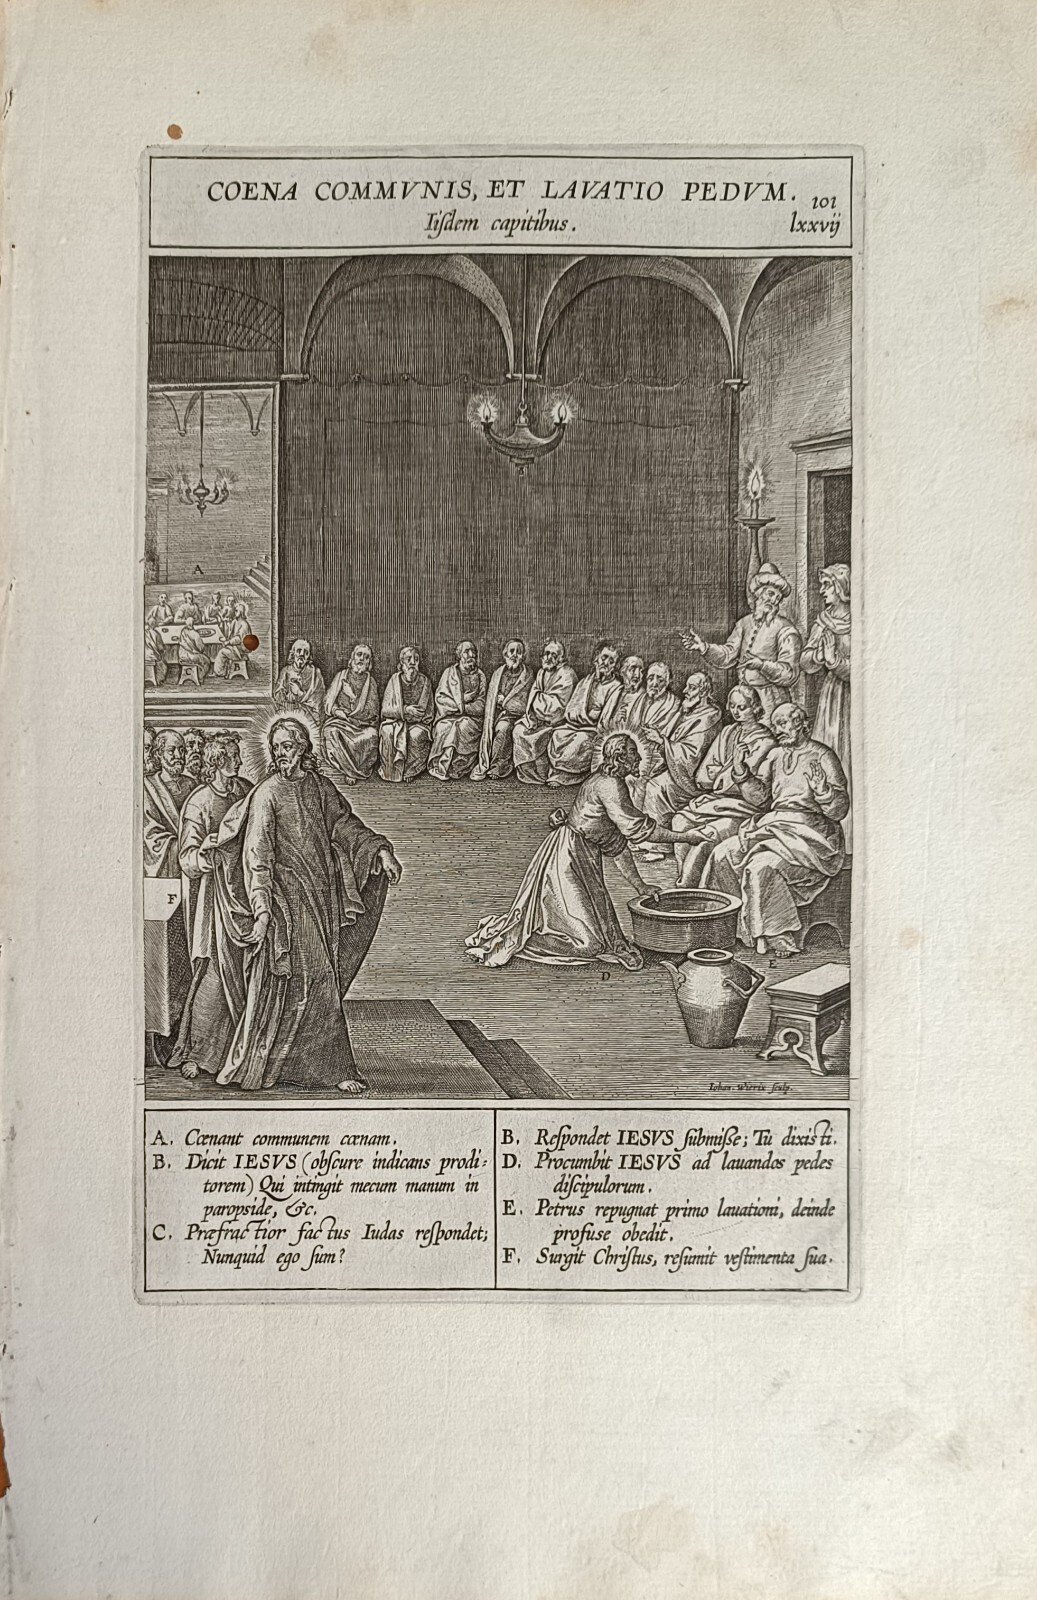 COENA COMMVNIS, ET LAVATIO PEDVM.
Iiſdem capitibus.
101
lxxvij
A
C
B
F
D
E
Iohan. Wierix ſculp.
A. Cœnant communem cœnam.
B. Dicit IESVS (obſcure indicans prodi-
torem) Qui intingit mecum manum in
paropside, &c.
C. Præfractior factus Iudas reſpondet;
Nunquid ego ſum?
B. Reſpondet IESVS ſubmiſſe; Tu dixisti.
D. Procumbit IESVS ad lauandos pedes
diſcipulorum.
E. Petrus repugnat primo lauationi, deinde
profuse obedit.
F. Surgit Chriſtus, reſumit veſtimenta ſua.